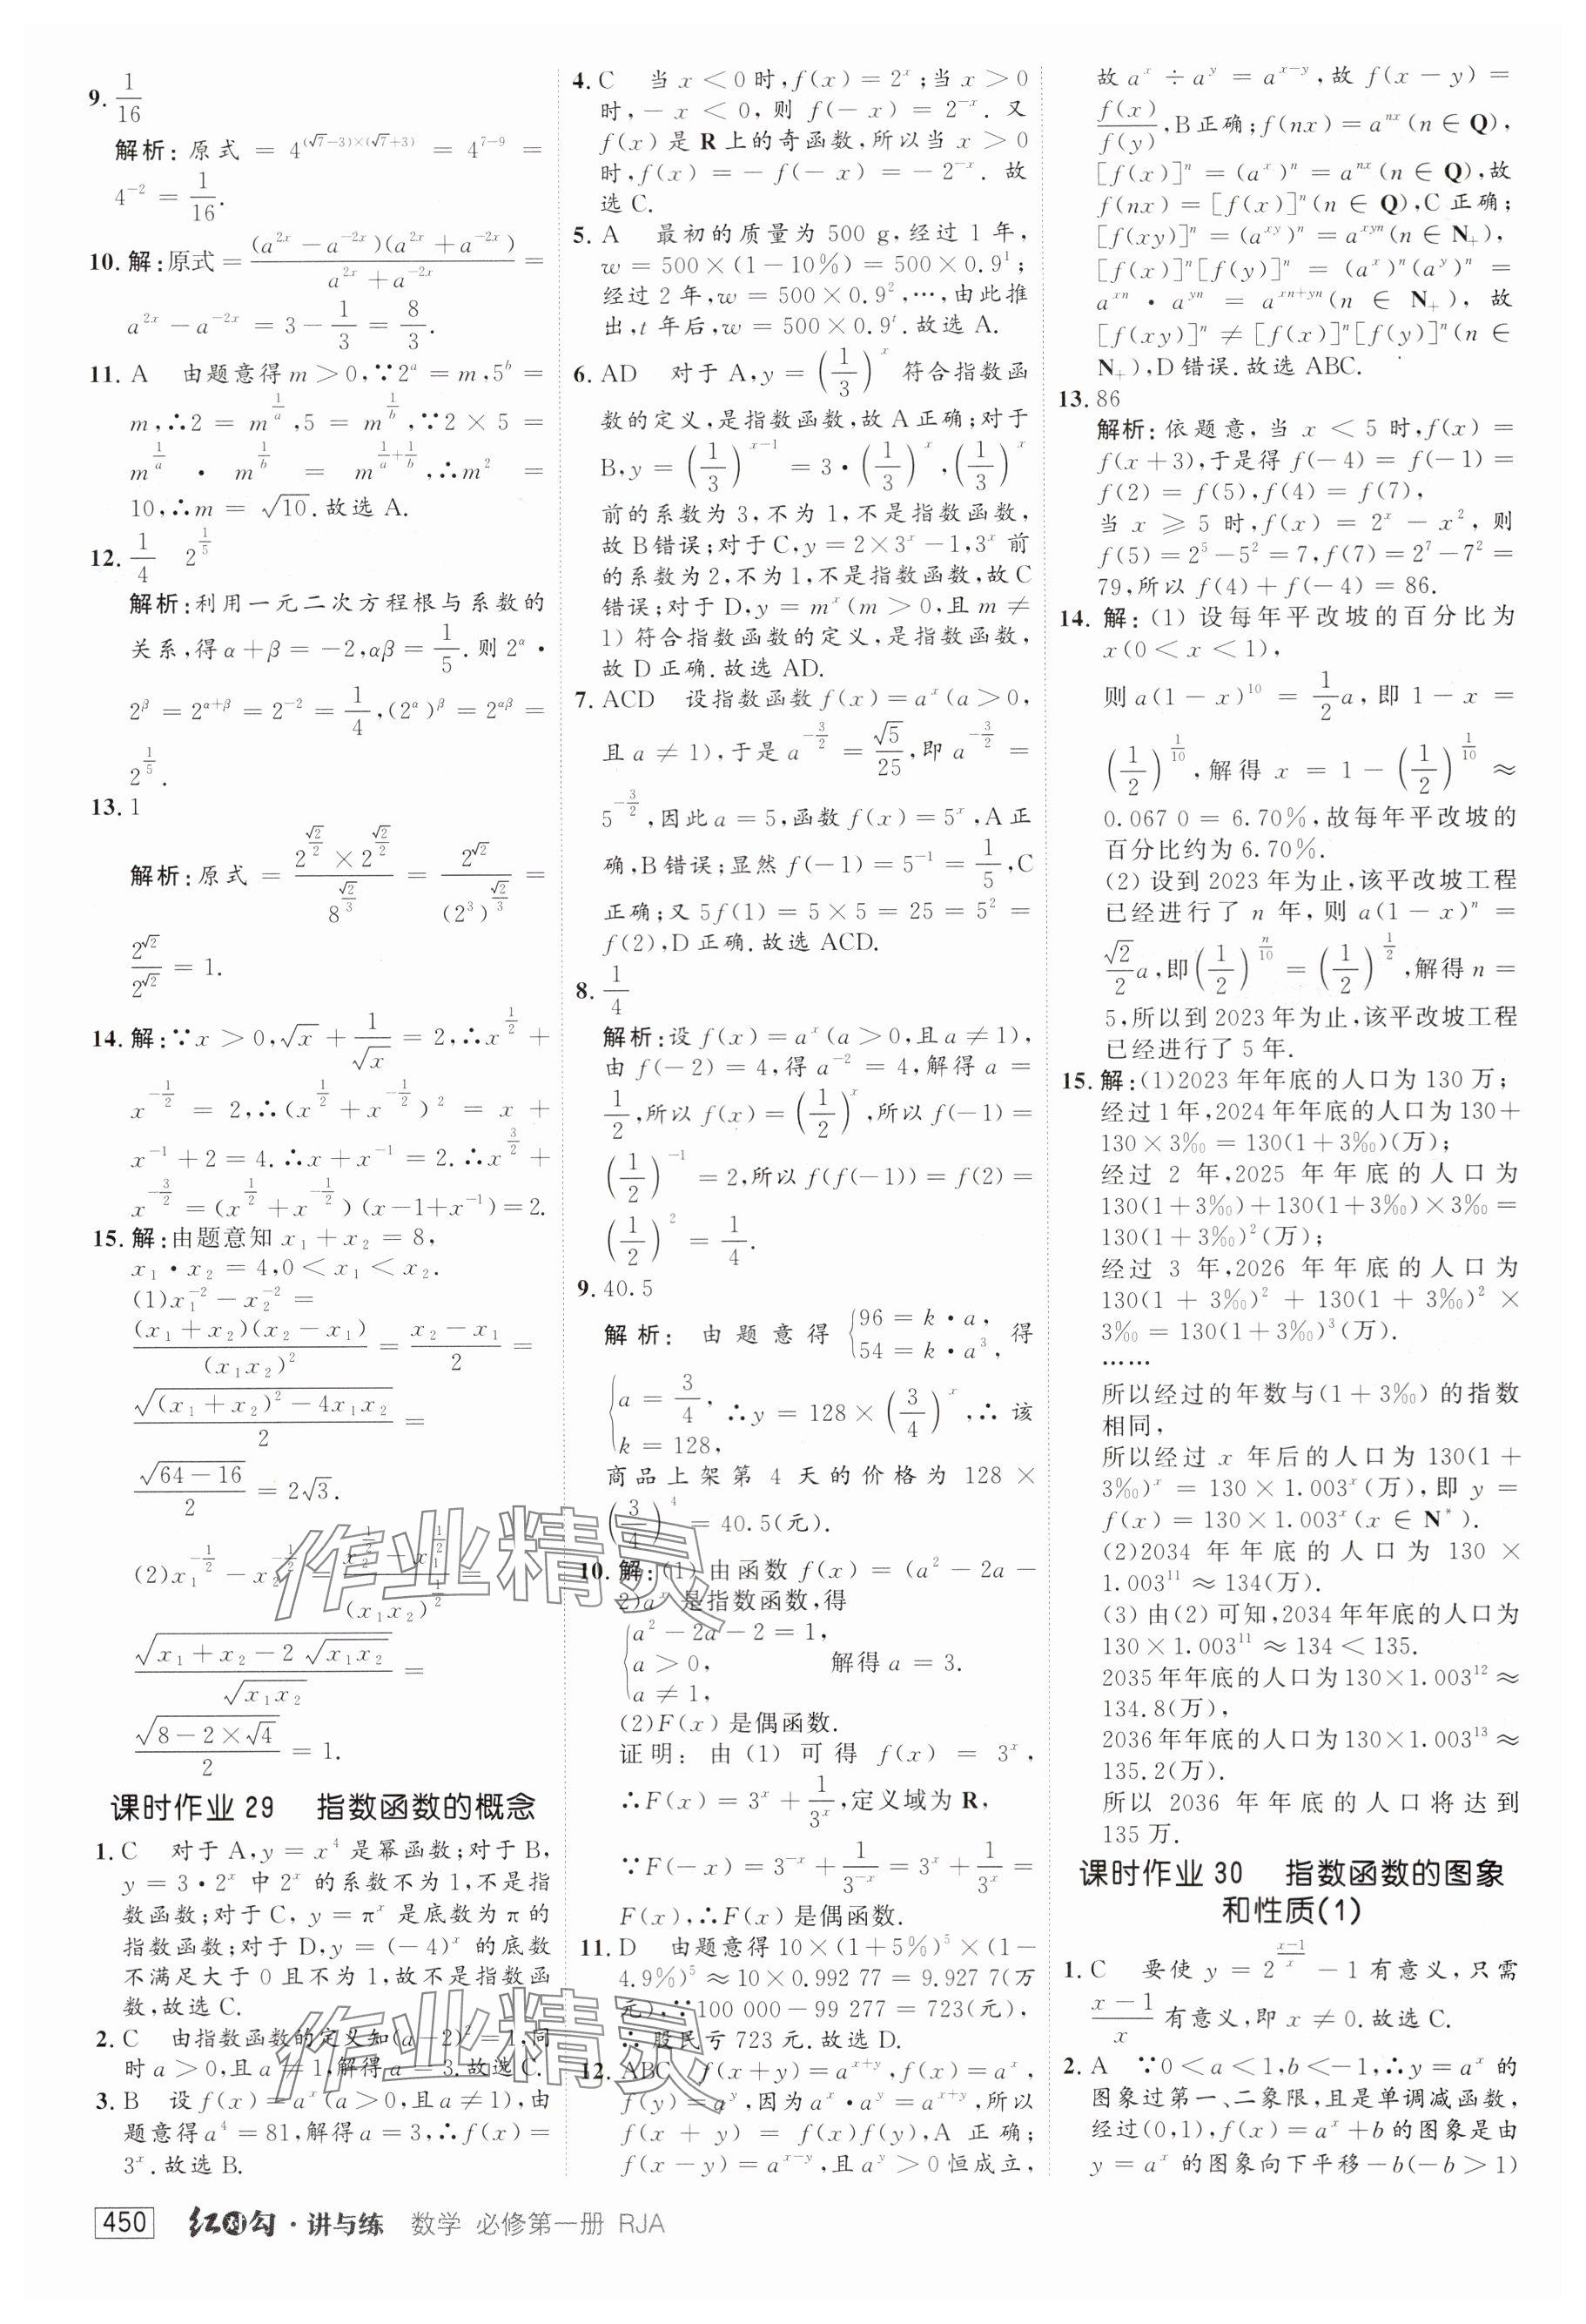 9. 1/16
解析: 原式 = 4^{(√7-3)×(√7+3)} = 4^{7-9} =
4^{-2} = 1/16.
10. 解:原式= (a^{2x}-a^{-2x})(a^{2x}+a^{-2x})/(a^{2x}+a^{-2x}) =
a^{2x}-a^{-2x} = 3-1/3 = 8/3.
11. A 由题意得m>0,∵2^a=m,5^b=
m,∴2 = m^{1/a},5 = m^{1/b},∵2×5 =
m^{1/a} · m^{1/b} = m^{1/a+1/b},∴m^2 =
10,∴m = √10.故选 A.
12. 1/4 2^{1/5}
解析:利用一元二次方程根与系数的
关系,得α+β=-2,αβ=1/5.则2^α·
2^β=2^{α+β}=2^{-2}=1/4,(2^α)^β=2^{αβ}=
2^{1/5}.
13. 1
解析:原式 = (2^{√2/2}×2^{√2/2})/8^{√2/3} = 2^{√2}/(2^3)^{√2/3} =
2^{√2}/2^{√2} = 1.
14. 解:∵x>0,√x+1/√x=2,∴x^{1/2}+
x^{-1/2} = 2,∴(x^{1/2}+x^{-1/2})^2 = x+
x^{-1}+2=4.∴x+x^{-1}=2.∴x^{3/2}+
x^{-3/2}=(x^{1/2}+x^{-1/2})(x-1+x^{-1})=2.
15. 解:由题意知 x_1+x_2=8,
x_1·x_2=4,0<x_1<x_2.
(1)x_1^{-2}-x_2^{-2}=
(x_1+x_2)(x_2-x_1)/(x_1x_2)^2 = (x_2-x_1)/2 =
√((x_1+x_2)^2-4x_1x_2)/2 =
√(64-16)/2 = 2√3.
(2)x_1^{-1/2}-x_2^{-1/2} = (x_2^{1/2}-x_1^{1/2})/(x_1x_2)^{1/2} =
√(x_1+x_2-2√(x_1x_2))/√(x_1x_2) =
√(8-2×√4)/2 = 1.
课时作业 29 指数函数的概念
1. C 对于 A,y=x^4 是幂函数;对于 B,
y=3·2^x 中 2^x 的系数不为 1,不是指
数函数;对于 C, y=π^x 是底数为 π 的
指数函数;对于 D,y=(-4)^x 的底数
不满足大于 0 且不为 1,故不是指数函
数,故选 C.
2. C 由指数函数的定义知(a-2)^2=1,同
时 a>0,且 a≠1,解得 a=3.故选 C.
3. B 设 f(x)=a^x(a>0,且a≠1),由
题意得a^4=81,解得a=3,∴f(x)=
3^x.故选 B.
4. C 当 x<0时,f(x)=2^x;当 x>0
时,-x<0,则 f(-x)=2^{-x}.又
f(x)是 R 上的奇函数,所以当 x>0
时,f(x)=-f(-x)=-2^{-x}.故
选 C.
5. A 最初的质量为 500 g,经过 1 年,
w=500×(1-10%)=500×0.9^1;
经过 2 年,w=500×0.9^2,…,由此推
出,t 年后,w=500×0.9^t.故选 A.
6. AD 对于 A,y=(1/3)^x 符合指数函
数的定义,是指数函数,故 A 正确;对于
B,y=(1/3)^{x-1}=3·(1/3)^x,(1/3)^x
前的系数为 3,不为 1,不是指数函数,
故 B错误;对于 C,y=2×3^x-1,3^x 前
的系数为 2,不为 1,不是指数函数,故 C
错误;对于 D,y=m^x(m>0,且 m≠
1)符合指数函数的定义,是指数函数,
故 D 正确.故选 AD.
7. ACD 设指数函数 f(x)=a^x(a>0,
且 a≠1),于是 a^{-3/2}=√5/25,即 a^{-3/2}=
5^{-3/2},因此 a=5,函数 f(x)=5^x,A 正
确,B 错误;显然 f(-1)=5^{-1}=1/5,C
正确;又 5f(1)=5×5=25=5^2=
f(2),D 正确.故选 ACD.
8. 1/4
解析:设 f(x)=a^x(a>0,且a≠1),
由 f(-2)=4,得 a^{-2}=4,解得 a=
1/2,所以 f(x)=(1/2)^x,所以 f(-1)=
(1/2)^{-1}=2,所以 f(f(-1))=f(2)=
(1/2)^2=1/4.
9. 40.5
解析: 由题意得 {96=k·a, 54=k·a^3, 得
{a=3/4, k=128, ∴y=128×(3/4)^x,∴该
商品上架第 4 天的价格为 128×
(3/4)^4=40.5(元).
10. 解:(1)由函数 f(x)=(a^2-2a-
2)a^x 是指数函数,得
{a^2-2a-2=1,
a>0, 解得 a=3.
a≠1,
(2)F(x)是偶函数.
证明: 由(1)可得 f(x)=3^x,
∴F(x)=3^x+1/3^x,定义域为 R,
∵F(-x)=3^{-x}+1/3^{-x}=3^x+1/3^x=
F(x),∴F(x)是偶函数.
11. D 由题意得10×(1+5%)^5×(1-
4.9%)^5≈10×0.992 77=9.927 7(万
元),∵100 000-99 277=723(元),
∴股民亏 723 元.故选 D.
12. ABC f(x+y)=a^{x+y},f(x)=a^x,
f(y)=a^y,因为a^x·a^y=a^{x+y},所以
f(x+y)=f(x)f(y),A 正确;
f(x-y)=a^{x-y},且 a^y>0 恒成立,
故 a^x÷a^y=a^{x-y},故 f(x-y)=
f(x)/f(y),B正确;f(nx)=a^{nx}(n∈Q),
[f(x)]^n=(a^x)^n=a^{nx}(n∈Q),故
f(nx)=[f(x)]^n(n∈Q),C 正确;
[f(xy)]^n=(a^{xy})^n=a^{xyn}(n∈N_+),
[f(x)]^n[f(y)]^n=(a^x)^n(a^y)^n=
a^{xn}·a^{yn}=a^{xn+yn}(n∈N_+),故
[f(xy)]^n≠[f(x)]^n[f(y)]^n(n∈
N_+),D 错误.故选 ABC.
13. 86
解析:依题意,当 x<5 时,f(x)=
f(x+3),于是得 f(-4)=f(-1)=
f(2)=f(5),f(4)=f(7),
当 x≥5 时,f(x)=2^x-x^2,则
f(5)=2^5-5^2=7,f(7)=2^7-7^2=
79,所以 f(4)+f(-4)=86.
14. 解:(1)设每年平改坡的百分比为
x(0<x<1),
则 a(1-x)^{10}=1/2a,即 1-x=
(1/2)^{1/10},解得 x=1-(1/2)^{1/10}≈
0.067 0=6.70%,故每年平改坡的
百分比约为 6.70%.
(2)设到 2023 年为止,该平改坡工程
已经进行了 n 年,则 a(1-x)^n=
√2/2a,即(1/2)^{n/10}=(1/2)^{1/2},解得 n=
5,所以到 2023 年为止,该平改坡工程
已经进行了 5 年.
15. 解:(1)2023 年年底的人口为 130 万;
经过 1 年,2024 年年底的人口为 130+
130×3‰=130(1+3‰)(万);
经过 2 年,2025 年年底的人口为
130(1+3‰)+130(1+3‰)×3‰=
130(1+3‰)^2(万);
经过 3 年,2026 年年底的人口为
130(1+3‰)^2+130(1+3‰)^2×
3‰=130(1+3‰)^3(万).
……
所以经过的年数与(1+3‰)的指数
相同,
所以经过 x 年后的人口为 130(1+
3‰)^x=130×1.003^x(万),即 y=
f(x)=130×1.003^x(x∈N^*).
(2)2034 年年底的人口为 130×
1.003^{11}≈134(万).
(3)由(2)可知,2034 年年底的人口为
130×1.003^{11}≈134<135.
2035年年底的人口为130×1.003^{12}≈
134.8(万),
2036年年底的人口为130×1.003^{13}≈
135.2(万).
所以 2036 年年底的人口将达到
135 万.
课时作业 30 指数函数的图象
和性质(1)
1. C 要使 y=2^{(x-1)/x}-1 有意义,只需
(x-1)/x 有意义,即 x≠0.故选 C.
2. A ∵0<a<1,b<-1,∴y=a^x 的
图象过第一、二象限,且是单调减函数,
经过(0,1),f(x)=a^x+b的图象是由
y=a^x 的图象向下平移-b(-b>1)
450 红对勾·讲与练 数学 必修第一册 RJA
作业精灵
作业精灵